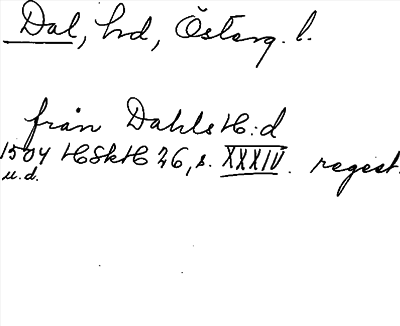 Dal, hd, Östarg. l.
från Dahls H:d
1504 HSkH 26, s. XXXIV. regest.
u.d.